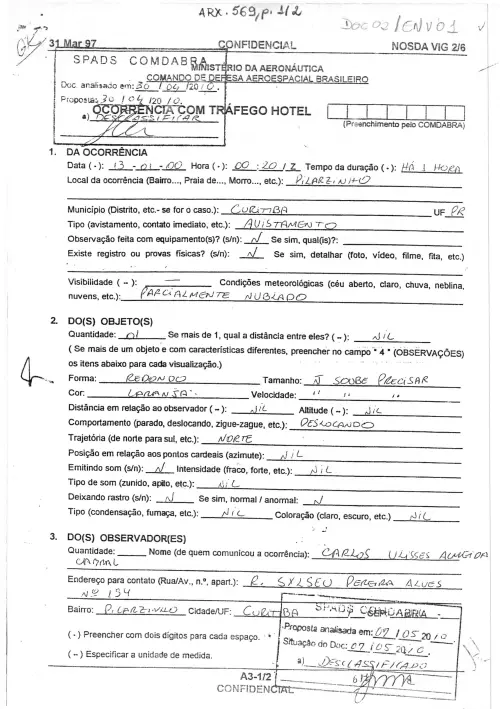 ARX. 569, p. 1/2
Doc 02 / ENV 01
31 Mar 97 CONFIDENCIAL NOSDA VIG 2/6
SPADS COMDABRA
MINISTÉRIO DA AERONÁUTICA
COMANDO DE DEFESA AEROESPACIAL BRASILEIRO
Doc. analisado em: 30 / 04 /20 10.
Proposta: 30 / 04 /20 10.
OCORRÊNCIA COM TRÁFEGO HOTEL
a) DESCLASSIFICAR
(Preenchimento pelo COMDABRA)
1. DA OCORRÊNCIA
Data (·): 13 - 01 - 00 Hora (·): 00 : 20 / Z Tempo da duração (·): HÁ 1 HORA
Local da ocorrência (Bairro..., Praia de..., Morro..., etc.): PILARZINHO
Município (Distrito, etc.- se for o caso.): CURITIBA UF PR
Tipo (avistamento, contato imediato, etc.): AVISTAMENTO
Observação feita com equipamento(s)? (s/n): N Se sim, qual(is)?:
Existe registro ou provas físicas? (s/n): N Se sim, detalhar (foto, vídeo, filme, fita, etc.)
Visibilidade ( ~ ): Condições meteorológicas (céu aberto, claro, chuva, neblina,
nuvens, etc.): PARCIALMENTE NUBLADO
2. DO(S) OBJETO(S)
Quantidade: 01 Se mais de 1, qual a distância entre eles? ( ~ ): NIL
( Se mais de um objeto e com características diferentes, preencher no campo " 4 " (OBSERVAÇÕES)
os itens abaixo para cada visualização.)
Forma: REDONDO Tamanho: Ñ SOUBE PRECISAR
Cor: LARANJA Velocidade: " "
Distância em relação ao observador ( ~ ): NIL Altitude ( ~ ): NIL
Comportamento (parado, deslocando, zigue-zague, etc.): DESLOCANDO
Trajetória (de norte para sul, etc.): NORTE
Posição em relação aos pontos cardeais (azimute): NIL
Emitindo som (s/n): N Intensidade (fraco, forte, etc.): NIL
Tipo de som (zunido, apito, etc.): NIL
Deixando rastro (s/n): N Se sim, normal / anormal: N
Tipo (condensação, fumaça, etc.): NIL Coloração (claro, escuro, etc.) NIL
3. DO(S) OBSERVADOR(ES)
Quantidade: Nome (de quem comunicou a ocorrência): CARLOS ULISSES ALMEIDA
Endereço para contato (Rua/Av., n.º, apart.): R. PEREIRA ALVES
Nº 194
Bairro: PILARZINHO Cidade/UF: CURITIBA
SPADS COMDABRA
(·) Preencher com dois dígitos para cada espaço.
Proposta analisada em: 07 / 05 20 10
Situação do Doc: 07 / 05 20 10.
( ~ ) Especificar a unidade de medida.
a) DESCLASSIFICADO
A3-1/2
CONFIDENCIAL